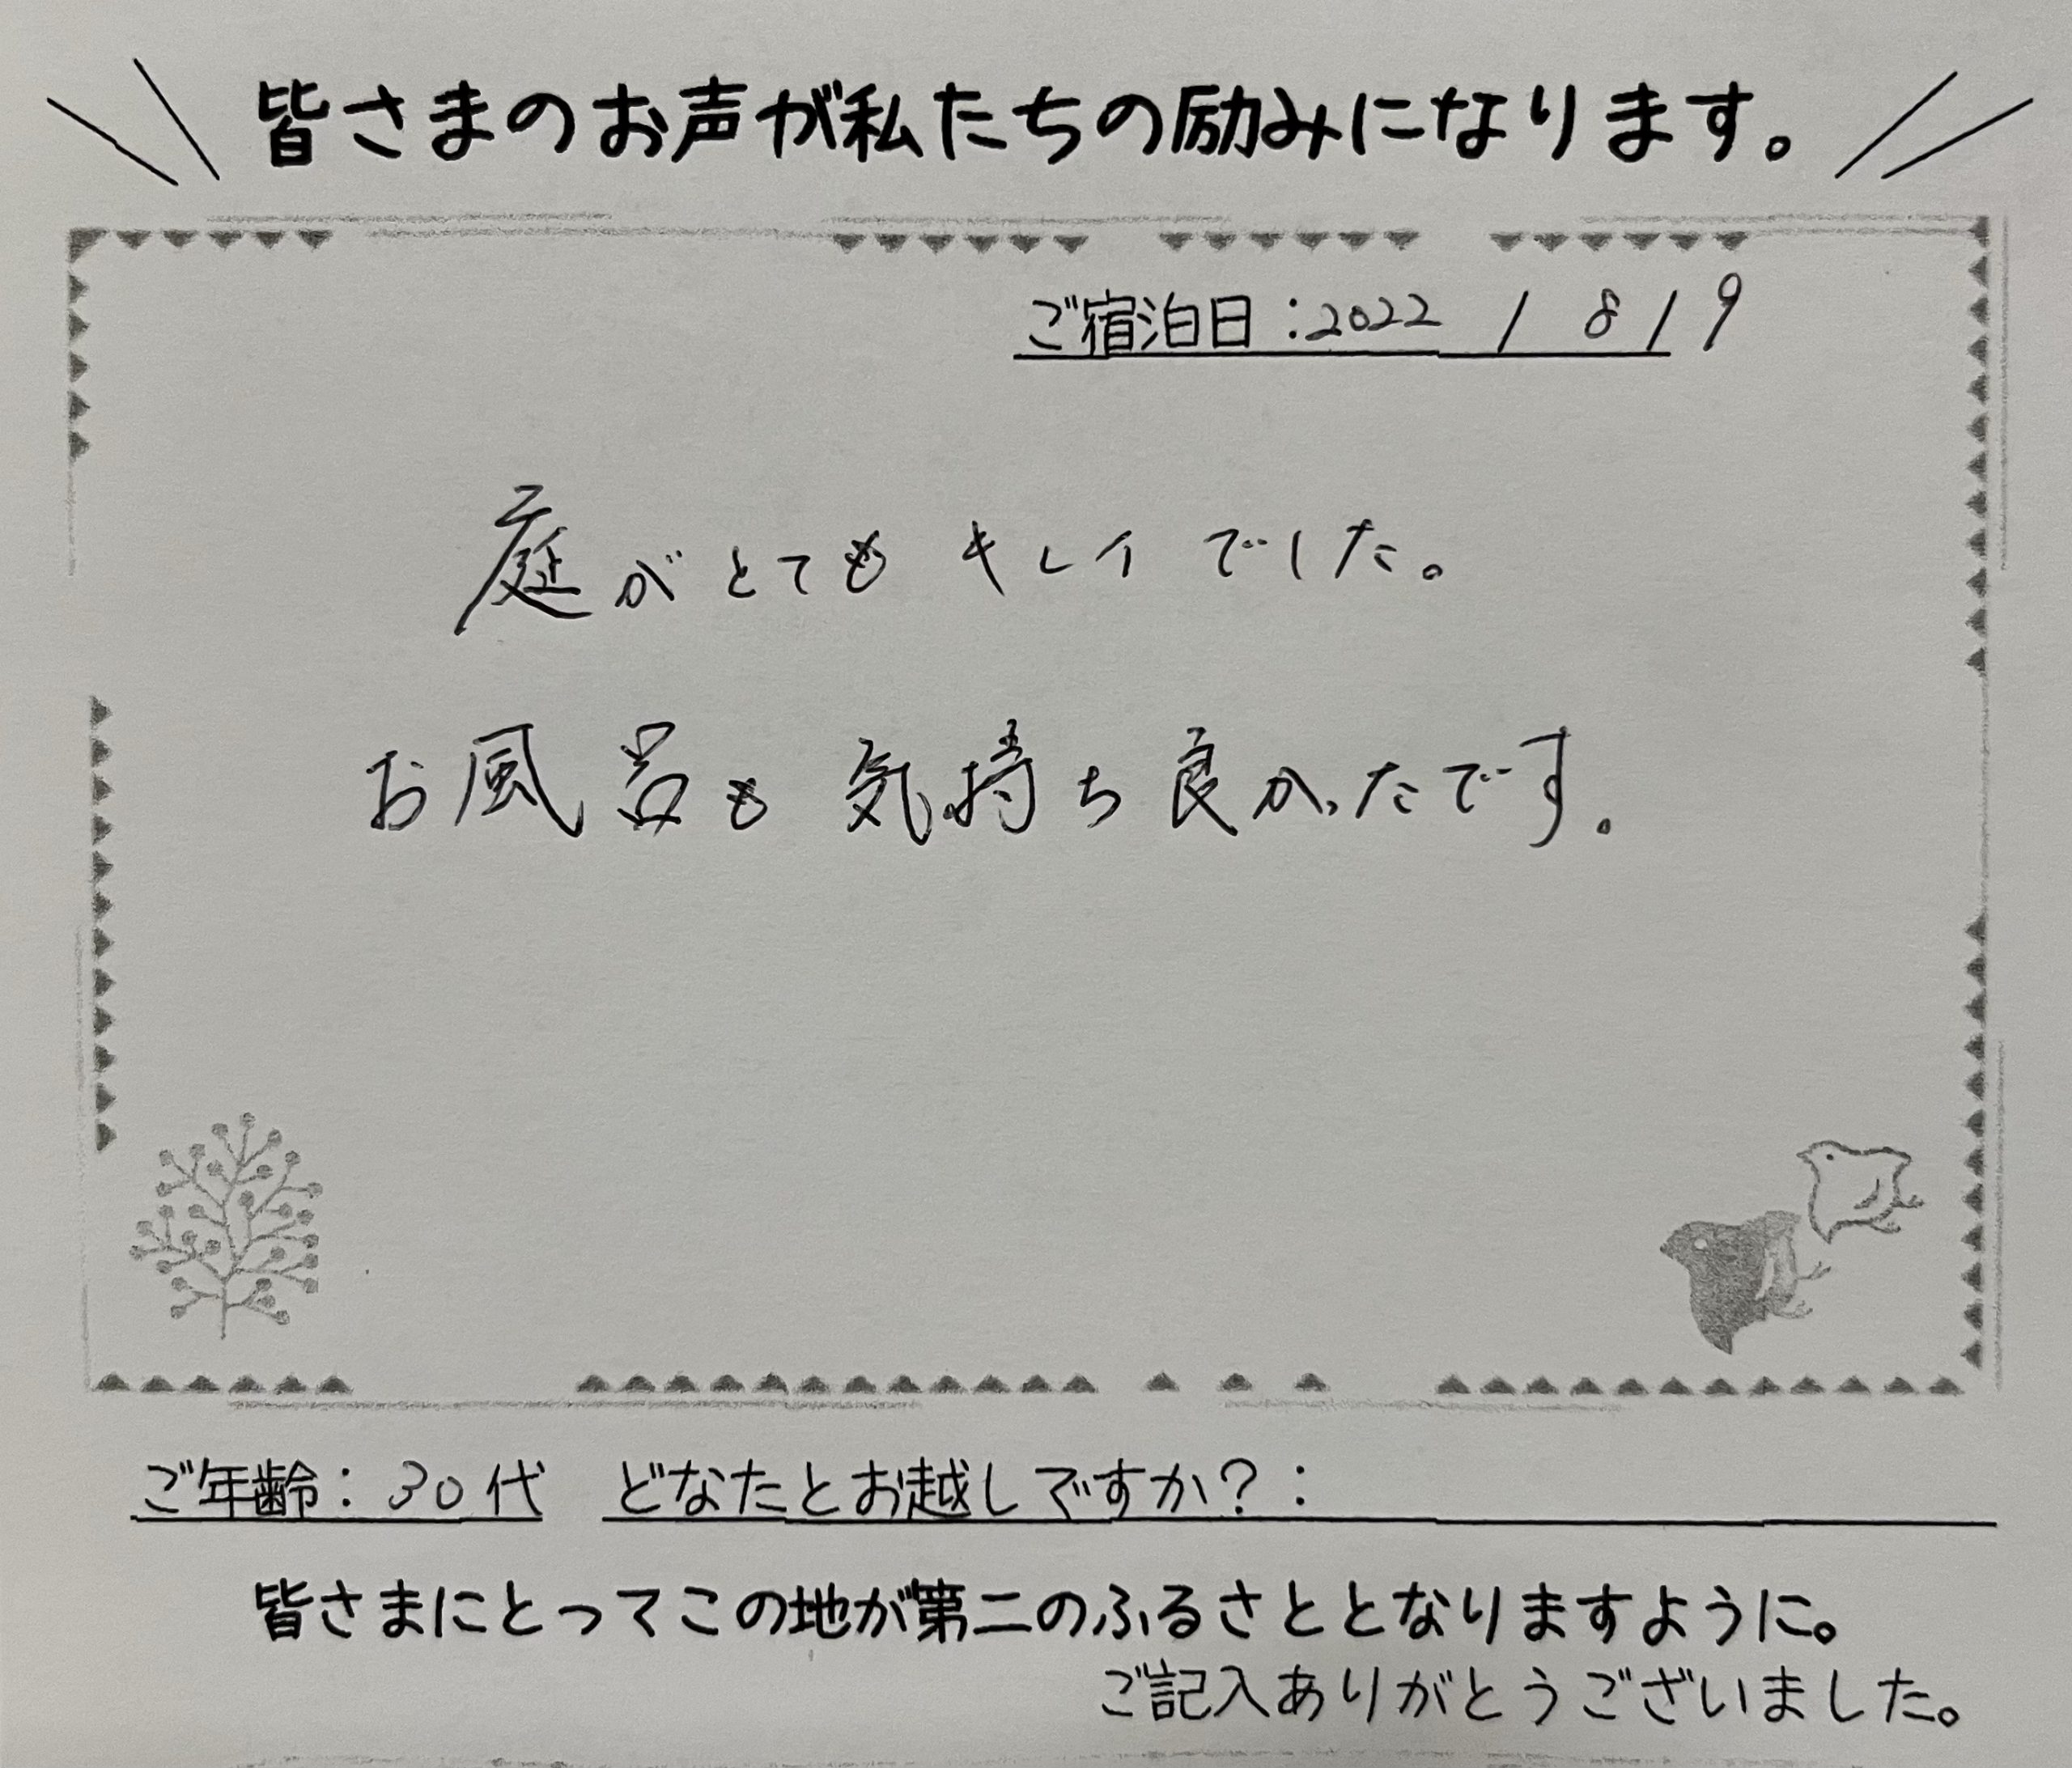 皆さまのお声が私たちの励みになります。
ご宿泊日：2022 / 8 / 9
庭がとてもキレイでした。
お風呂も気持ち良かったです。
ご年齢：30代 どなたとお越しですか？：
皆さまにとってこの地が第二のふるさととなりますように。
ご記入ありがとうございました。